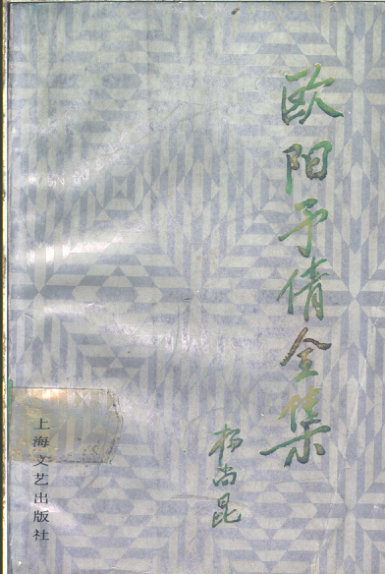 欧阳予倩全集
杨尚昆
上海文艺出版社